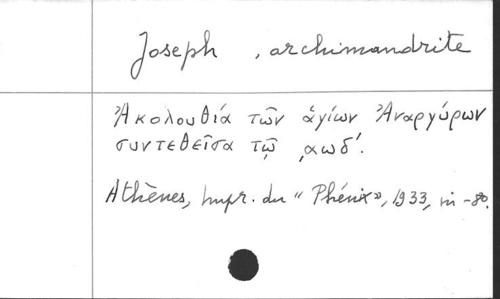 Joseph , archimandrite
Ἀκολουθιά τῶν ἁγίων Ἀναργύρων
συντεθεῖσα τῷ ͵αωδ´.
Athènes, Impr. du "Phénix", 1933, in-8o.